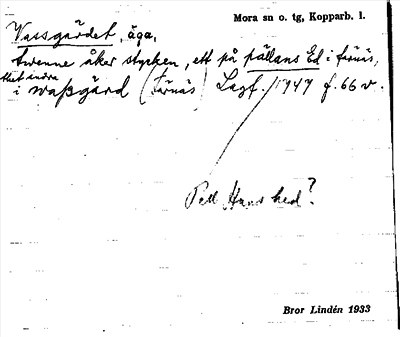 Mora sn o. tg, Kopparb. l.
Vassgärdet, äga,
twenne åker stycken, ett på pällans Ed i färnäs,
thet andra
i waßgärd (Färnäs) Lagf. 1747 f. 66 v.
Pell Hans hed?
Bror Lindén 1933